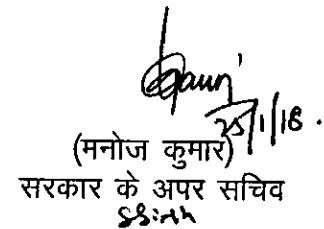 25/1/18.
(मनोज कुमार)
सरकार के अपर सचिव